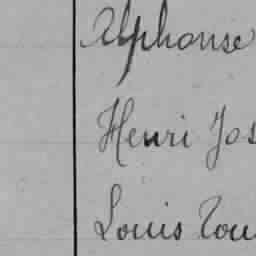 Alphonse
Henri Jos
Louis